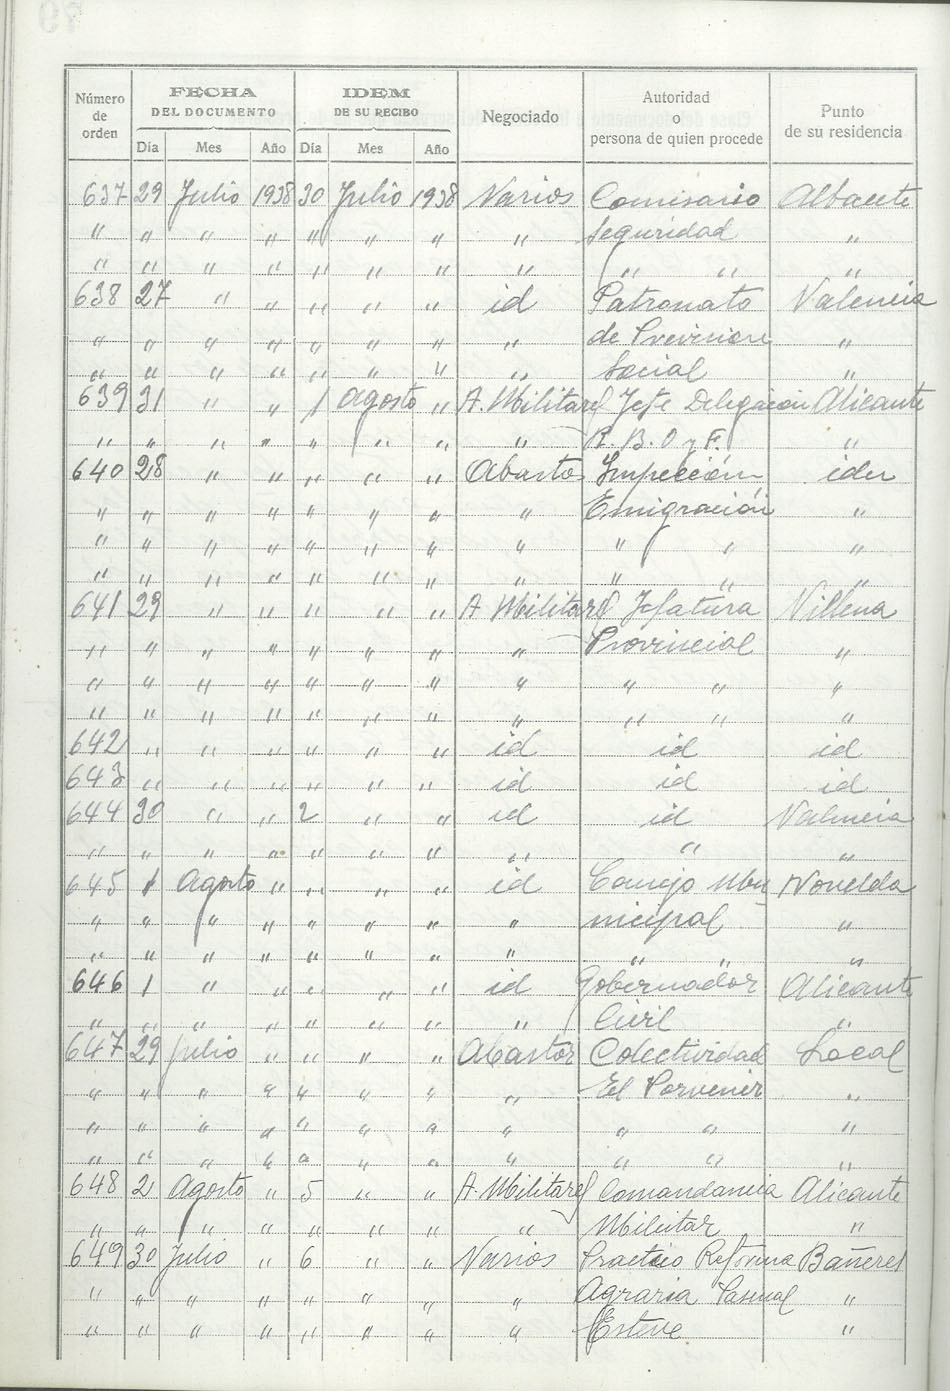 Número de orden | FECHA DEL DOCUMENTO | IDEM DE SU RECIBO | Negociado | Autoridad o persona de quien procede | Punto de su residencia
Día | Mes | Año | Día | Mes | Año
637 29 Julio 1938 30 Julio 1938 Varios Comisario Albacete
" " " " " " " " Seguridad "
" " " " " " " " " " "
638 27 " " " " " id Patronato Valencia
" " " " " " " " de Prevision "
" " " " " " " " Social "
639 31 " " 1 Agosto " A. Militares Jefe Delegación Alicante
" " " " " " " " R. B. O y F. "
640 28 " " " " " Abasto Inspección idem
" " " " " " " " Emigración "
" " " " " " " " " " "
" " " " " " " " " " "
641 29 " " " " " A Militares Jefatura Villena
" " " " " " " " Provincial "
" " " " " " " " " " "
" " " " " " " " " " "
642 " " " " " " id id id
643 " " " " " " id id id
644 30 " " 2 " " id id Valencia
" " " " " " " " " "
645 1 Agosto " " " " id Consejo Mu Novelda
" " " " " " " " nicipal "
" " " " " " " " " " "
646 1 " " " " " id Gobernador Alicante
" " " " " " " " Civil "
647 29 Julio " " " " Abastos Colectividad Local
" " " " 4 " " " El Porvenir "
" " " " " " " " " " "
" " " " " " " " " " "
648 2 Agosto " 5 " " A. Militares Comandancia Alicante
" " " " " " " " Militar "
649 30 Julio " 6 " " Varios Practico Reforma Bañeres
" " " " " " " " Agraria Pascual "
" " " " " " " " Esteve "